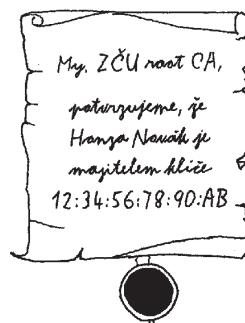 My, ZČU root CA,
potvrzujeme, že
Honza Novák je
majitelem klíče
12:34:56:78:90:AB